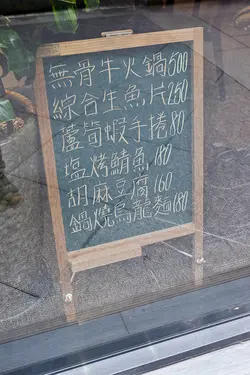 無骨牛火鍋500
綜合生魚片250
蘆筍蝦手捲80
塩烤鯖魚180
胡麻豆腐160
鍋燒烏龍麵180